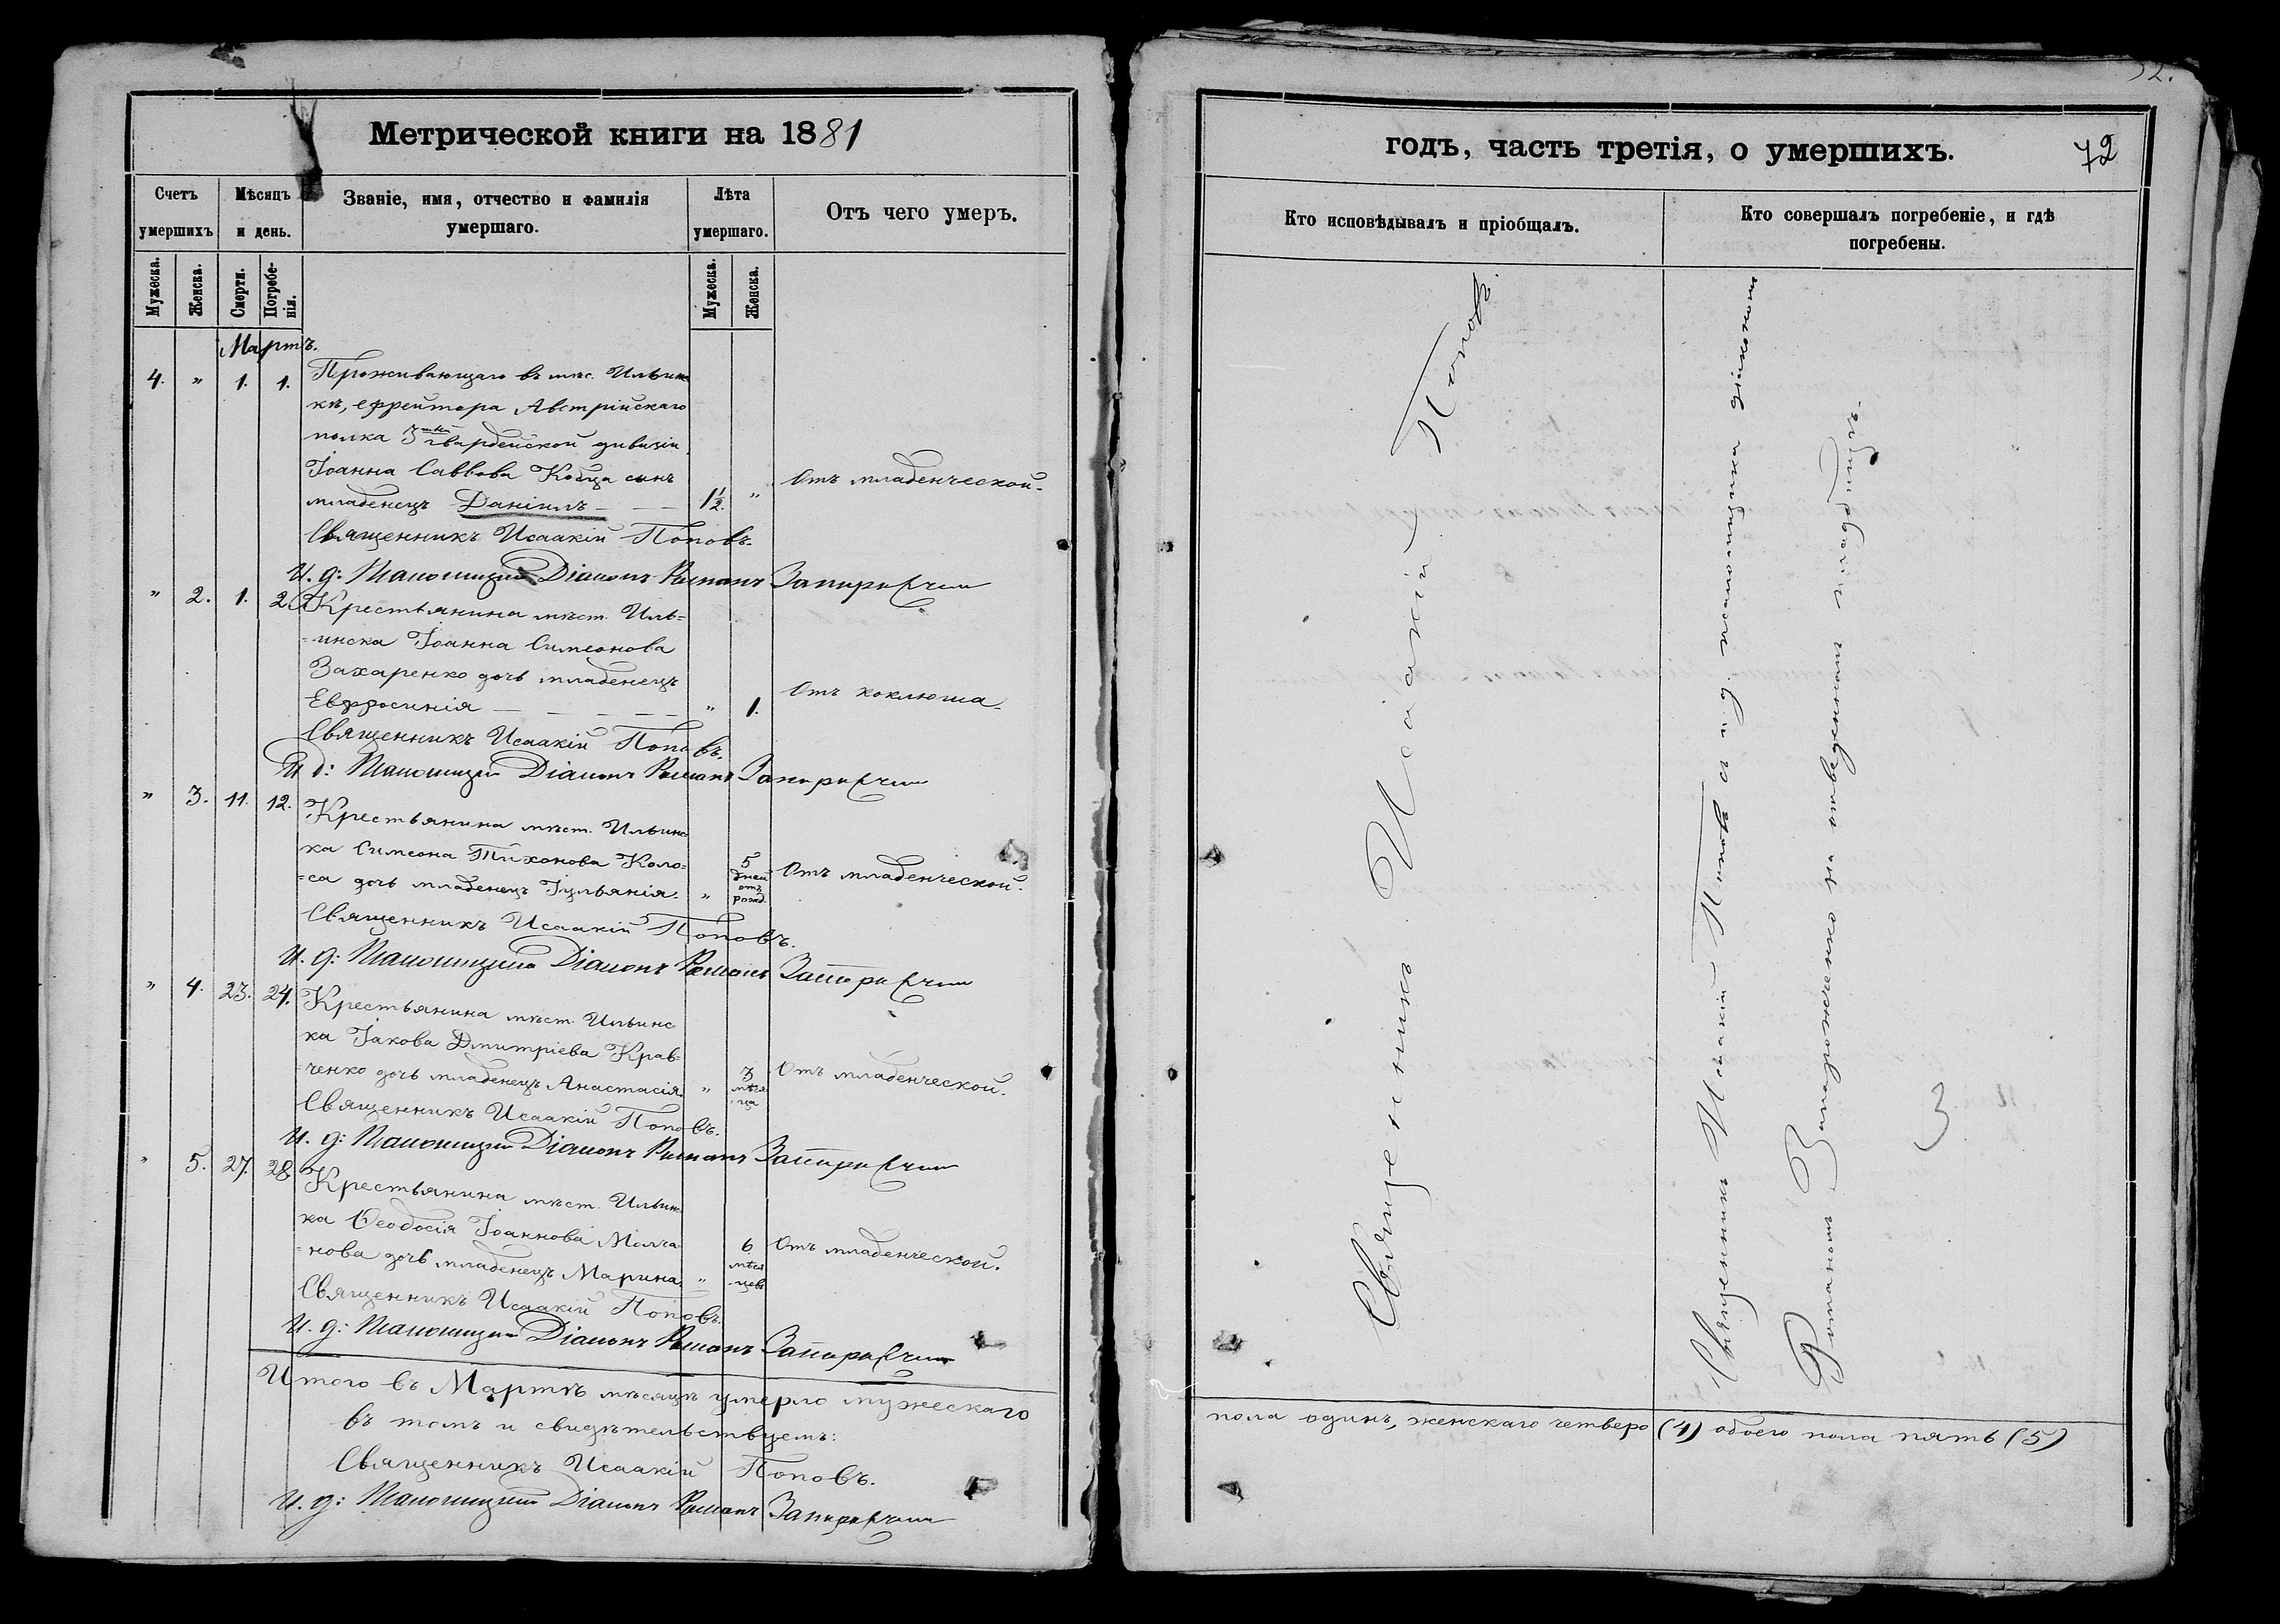 Метрической книги на 1881
Счетъ умершихъ
Мѣсяцъ и день.
Званіе, имя, отчество и фамилія умершаго.
Лѣта умершаго.
Отъ чего умеръ.
Мужеска.
Женска.
Смерти.
Погребе-
нія.
Мужеска.
Женска.
Мартъ.
4. " 1. 1. Проживающаго въ мѣс. Ильинс
кѣ, ефрейтора Австрійскаго
полка 3тьей гвардейской дивизіи
Іоанна Саввова сынъ
младенецъ Даніилъ — — 1½. " Отъ младенческой.
Священникъ Исаакій Поповъ.
И. д: Псаломщика Діаконъ Романъ
" 2. 1. 2. Крестьянина мѣст. Иль=
=инска Іоанна Симеонова
Захаренко дочь младенецъ
Евфросинія — — — — — " 1. Отъ коклюша.
Священникъ Исаакій Поповъ.
И д: Псаломщика Діаконъ Романъ
" 3. 11. 12. Крестьянина мѣст. Ильинс
ка Симеона Тихонова Коло=
=са дочь младенецъ Іульянія. " 5 дней отъ рожд. Отъ младенческой.
Священникъ Исаакій Поповъ.
И. д: Псаломщика Діаконъ Романъ
" 4. 23. 24. Крестьянина мѣст. Ильинс
ка Іакова Дмитріева Крав=
=ченко дочь младенецъ Анастасія. " 3 мѣся-ца Отъ младенческой.
Священникъ Исаакій Поповъ.
И. д: Псаломщика Діаконъ Романъ
" 5. 27. 28. Крестьянина мѣст. Ильинс
ка Ѳеодосія Іоаннова Молча=
=нова дочь младенецъ Марина. " 6 мѣся-цевъ Отъ младенческой.
Священникъ Исаакій Поповъ.
И. д: Псаломщика Діаконъ Романъ
Итого въ Мартѣ мѣсяцѣ умерло мужескаго
въ томъ и свидѣтельствуемъ:
Священникъ Исаакій Поповъ.
И. д: Псаломщика Діаконъ Романъ
годъ, часть третія, о умершихъ.
72
Кто исповѣдывалъ и пріобщалъ.
Кто совершалъ погребеніе, и гдѣ погребены.
Священникъ Исаакій Поповъ.
Священникъ Исаакій Поповъ съ и. д. псаломщика діакономъ
Романомъ Запорожченко на отведенномъ кладбищѣ.
3
пола одинъ, женскаго четверо (4) обоего пола пять (5)